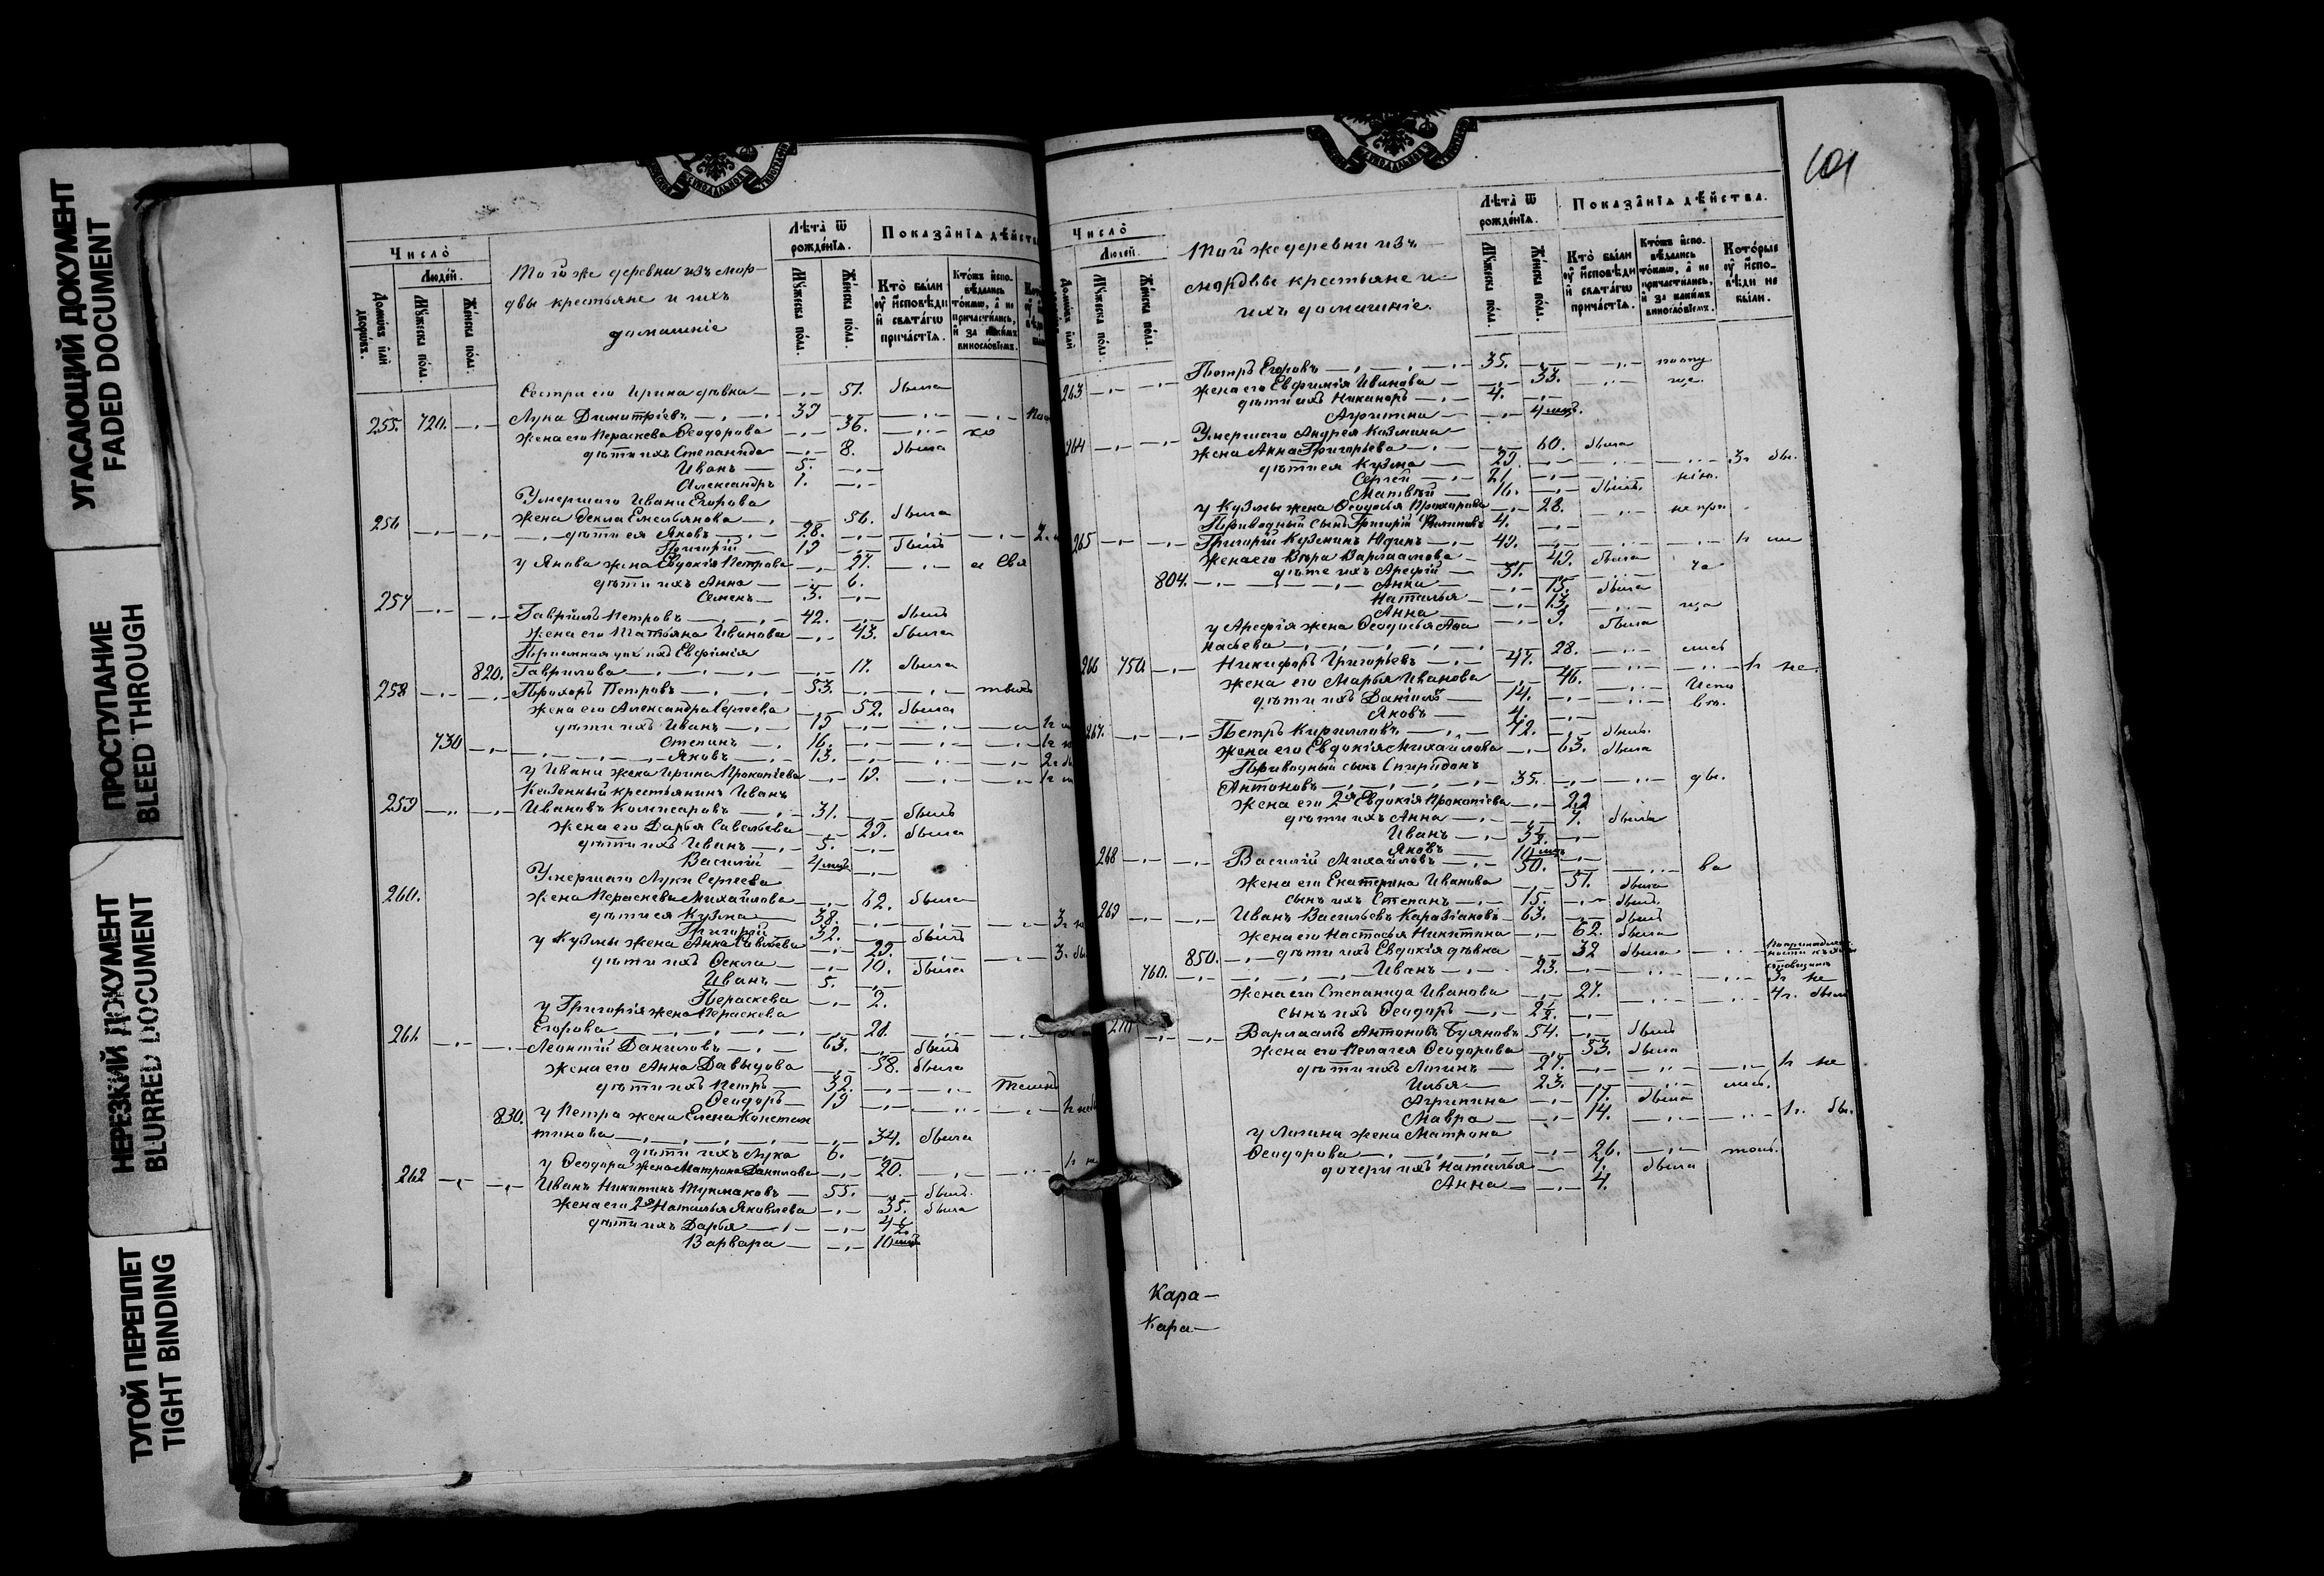 УГАСАЮЩИЙ ДОКУМЕНТ
FADED DOCUMENT
ПРОСТУПАНИЕ
BLEED THROUGH
НЕРЕЗКИЙ ДОКУМЕНТ
BLURRED DOCUMENT
ТУГОЙ ПЕРЕПЛЕТ
TIGHT BINDING
Число̀
Людей.
Домовъ или дворовъ.
Мужеска пола.
Женска пола.
Той же деревни изъ мор-
двы крестьяне и ихъ
домашніе
Лѣта ѿ рожденїѧ.
Мужеска пола.
Женска пола.
Показанїѧ дѣйств
Кто были ѹ исповѣди и свѧтагѡ причастїѧ.
Ктожъ исповѣдались токмѡ, а не причастились, и за какимъ винословїемъ.
Сестра его Ирина дѣвка — 51. была
255. 720. Лука Димитріевъ — 39
жена его Параскева Ѳеодорова — 36. хо
дѣти ихъ Степанида — 8. была
Иванъ — 5.
Александръ 1.
Умершаго Ивана Егорова
256 жена Ѳекла Емельянова — 56. была
дѣти ея Яковъ — 28.
Григорій — 19 былъ
у Якова жена Евдокія Петрова — 27.
дѣти ихъ Анна — 6.
Семенъ — 3.
257 Гавріилъ Петровъ — 42. былъ
жена его Татьяна Иванова — 43. была
Пріемная дочь ихъ Евфимія
820. Гаврилова — 17. была
258 Прохоръ Петровъ — 53.
жена его Александра Сергеева — 52. была
дѣти ихъ Иванъ — 19
Степанъ — 16.
730 Яковъ — 13.
у Ивана жена Ирина Прокопіева — 19.
Казенный крестьянинъ Иванъ
259 Ивановъ Комисаровъ — 31. былъ
жена его Дарья Савельева — 29. была
дѣти ихъ Иванъ — 5.
Василій — 4 мцъ
Умершаго Луки Сергеева
260. жена Параскева Михайлова — 62. была
дѣти ея Кузма — 38.
Григорій 32. былъ
у Кузмы жена Анна Савельева — 29.
дѣти ихъ Ѳекла — 10. была
Иванъ — 5.
Параскева — 2.
у Григорія жена Параскева
Егорова — 28.
261. Леонтій Даниловъ — 63. былъ
жена его Анна Давыдова — 58. была
дѣти ихъ Петръ — 32.
Ѳеодоръ — 19
830. у Петра жена Елена Констан
тинова — 34. была
дѣти ихъ Лука 6.
у Ѳеодора жена Матрона Данилова — 20.
262 Иванъ Никитинъ Тукмаковъ — 55. былъ
жена его 2я Наталья Яковлева — 35. была
дѣти ихъ Дарья — 4½
Варвара — 10 мцъ
101
Число̀
Людей.
Мужеска пола.
Женска пола.
Той же деревни изъ
мордвы крестьяне и
ихъ домашніе.
Лѣта ѿ рожденїѧ.
Мужеска пола.
Женска пола.
Показанїѧ дѣйства.
Кто были ѹ исповѣди и свѧтагѡ причастїѧ.
Ктожъ исповѣдались токмѡ, а не причастились, и за какимъ винословїемъ.
Которые ѹ исповѣди не были.
263 Петръ Егоровъ — 35.
жена его Евфимія Иванова — 33.
дѣти ихъ Никаноръ — 4.
Агрипина — 4 мцъ.
Умершаго Андрея Козмина
264 жена Анна Григорьева — 60. была
дѣти ея Кузма — 29. 3г бы.
Сергей — 21
Матвѣй — 16. былъ.
у Кузмы жена Ѳеодосья Прохорова — 28. не при
Приводный сынъ Григорій Филиповъ 4.
265 Григорій Кузминъ Юдинъ — 49.
жена его Вѣра Варлаамова — 49. была
804. дѣти ихъ Арефій — 31.
Анна — 15. была
Наталья — 13.
Анна — 9. была
у Арефія жена Ѳеодосья Ава
насьева — 28.
266 750. Никифоръ Григорьевъ — 47. 1г не
жена его Марья Иванова — 46. Испо
дѣти ихъ Даніилъ — 14.
Яковъ — 4.
267. Петръ Кирилловъ — 72. былъ.
жена его Евдокія Михайлова — 63. была
Приводный сынъ Спиридонъ
Антоновъ — 35. ды.
жена его 2я Евдокія Прокопіева — 22
дѣти ихъ Анна — 7. была
Иванъ — 3½
Яковъ — 10 мцъ
268 Василій Михайловъ — 50. ва
жена его Екатерина Иванова — 51. была
сынъ ихъ Степанъ — 15. былъ.
269 Иванъ Васильевъ Каразіановъ — 63. былъ
жена его Настасья Никитина — 62. была
850. дѣти ихъ Евдокія дѣвка — 32 была
760. Иванъ — 23. 3г не
жена его Степанида Иванова — 27. 4г. были
сынъ ихъ Ѳеодоръ — 2½.
270 Варлаамъ Антоновъ Буяновъ 54. былъ
жена его Пелагея Ѳеодорова — 53. была
дѣти ихъ Логинъ — 27. 1г не
Илья — 23.
Агрипина — 17. была
Мавра — 14. 1г. бы.
у Логина жена Матрона
Ѳеодорова — 26.
дочери ихъ Наталья — 7. была
Анна — 4.
Кара—
Кара—